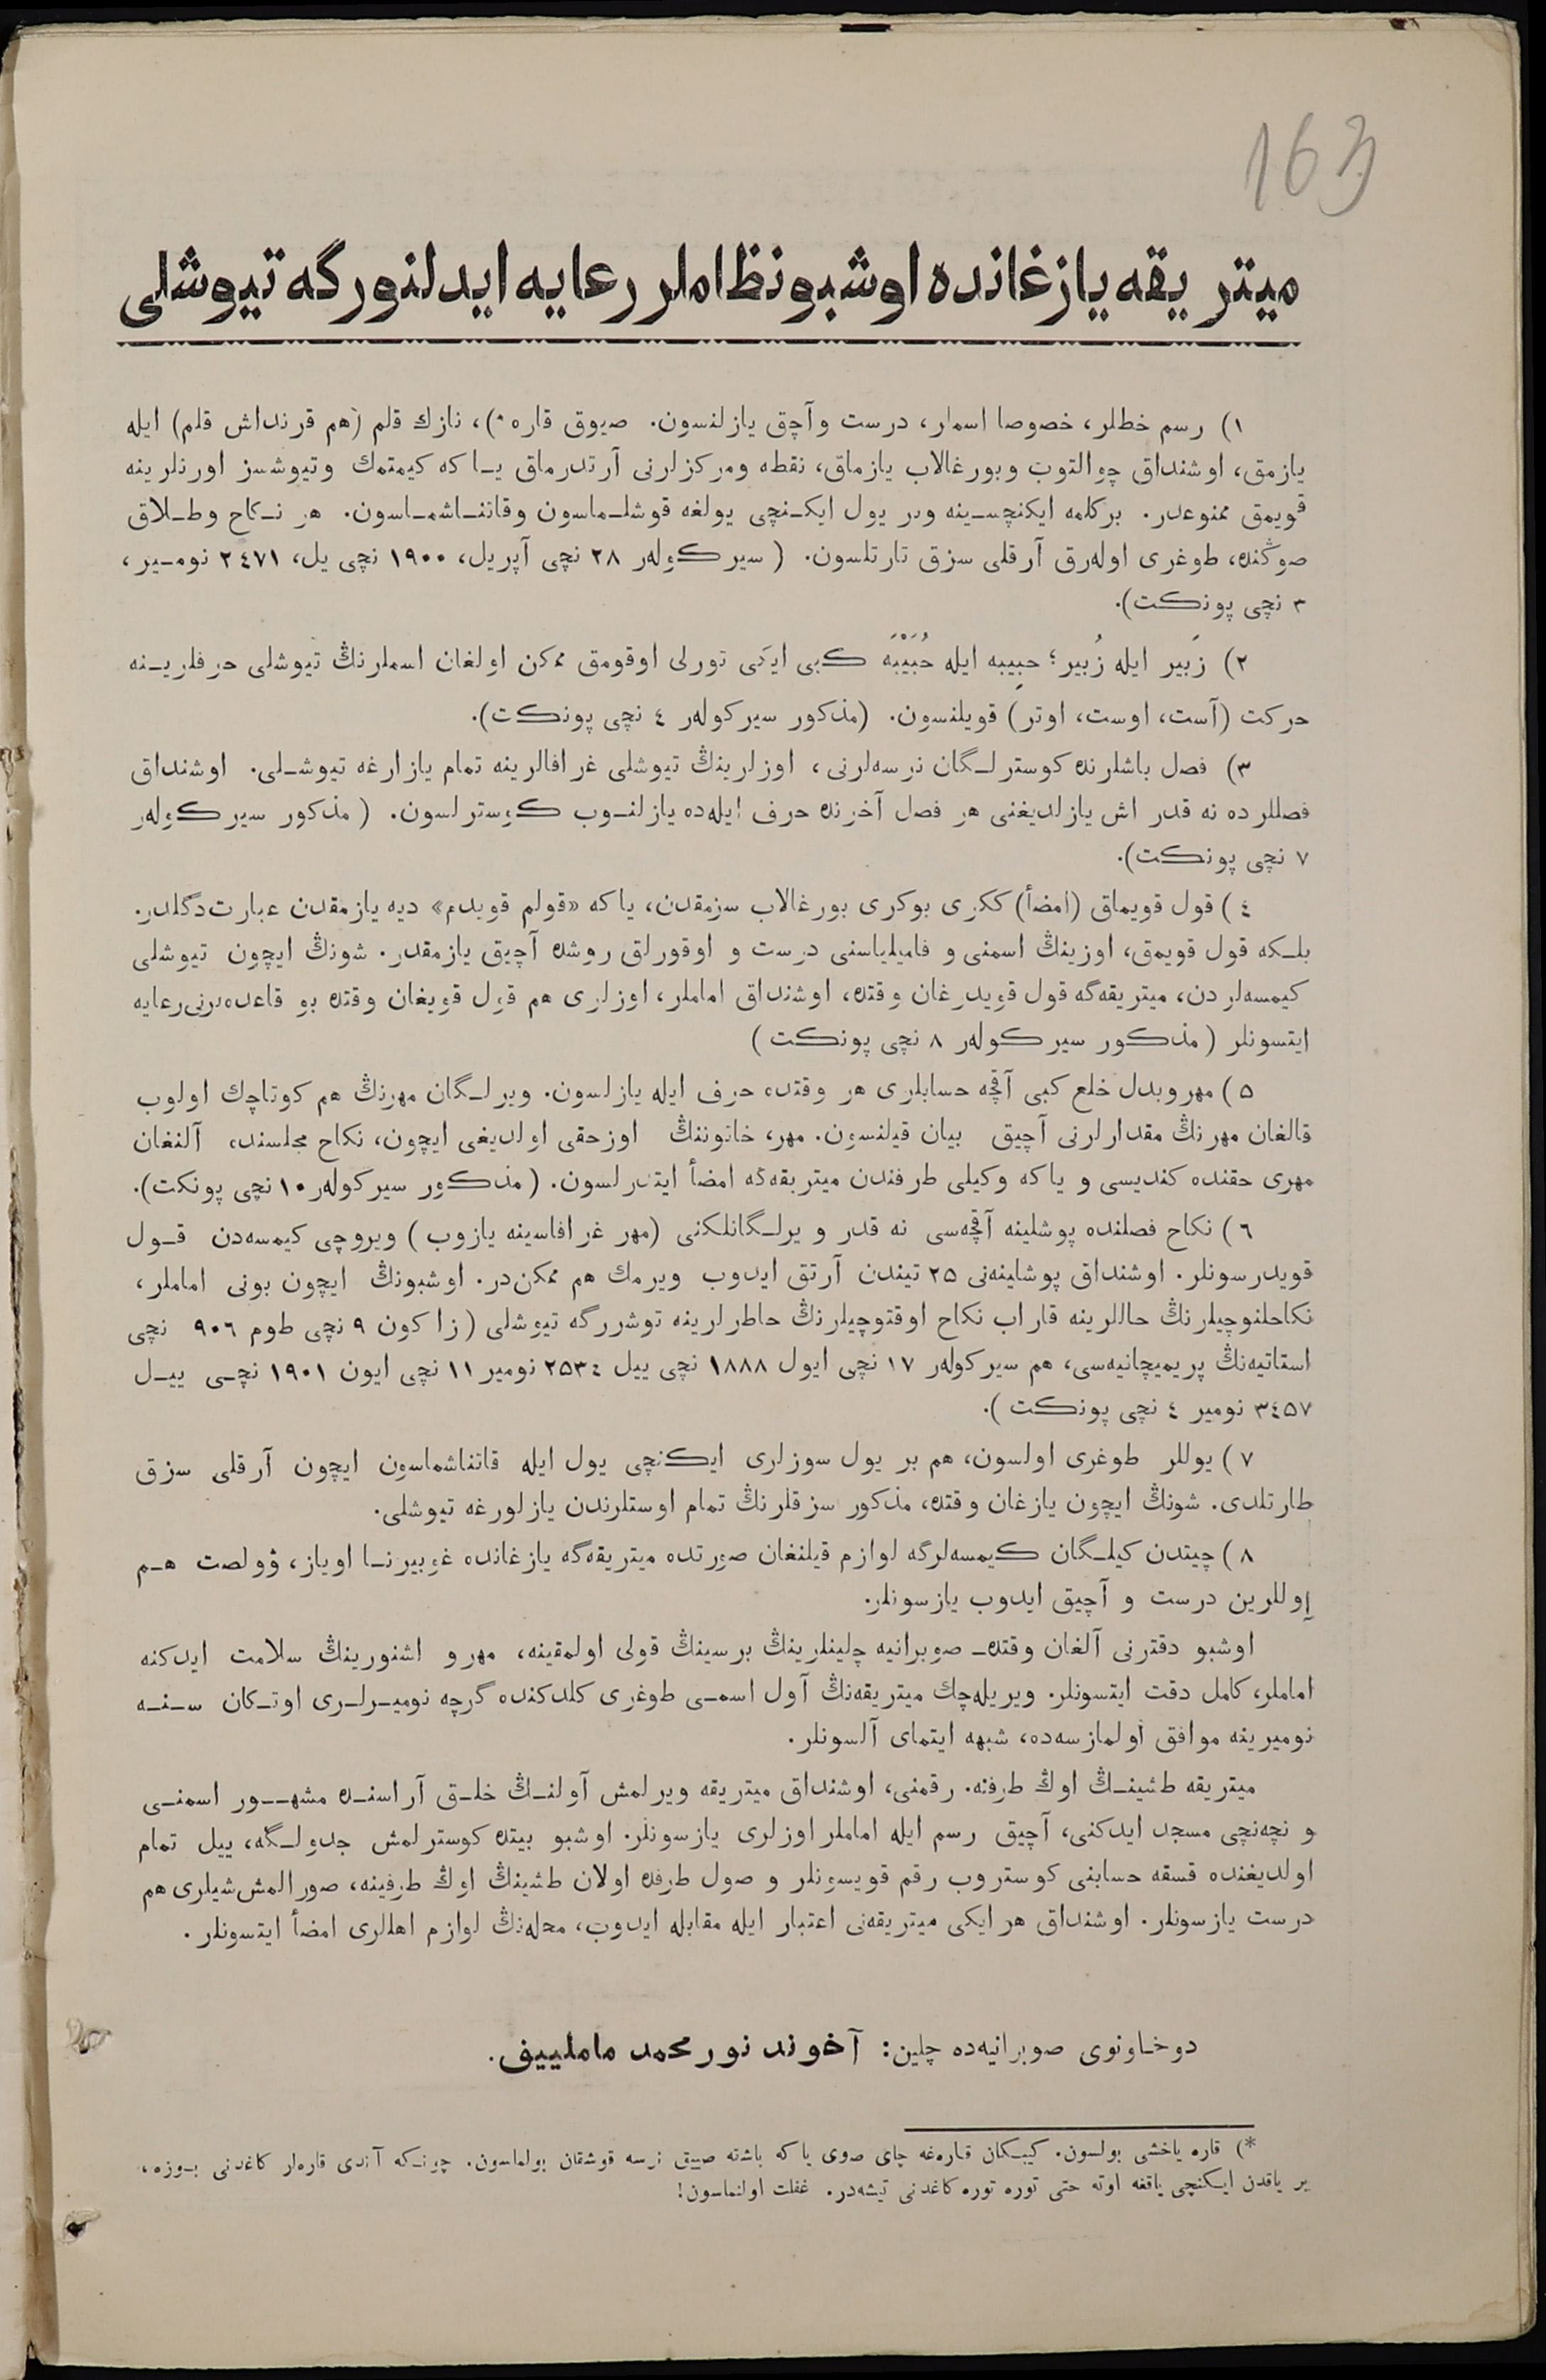 163
میتریقه یازغانده اوشبو نظاملر رعایه ایدلنورگه تیوشلی
١) رسم خطلر، خصوصا اسملر، درست وآچق یازلنسون. صیوق قاره *)، نازك قلم (هم قرنداش قلم) ایله
یازمق، اوشنداق چوالتوب وبورغالاب یازماق، نقطه ومرکزلرنی آرتدرماق یـا که کیمتمك وتیوشسز اورنلرینه
قویمق ممنوعدر. برکلمه ایکنچسـینه وبر یول ایکـنچی یولغه قوشلـماسون وقاتنـاشمـاسون. هر نـکاح وطـلاق
صوڭنده، طوغری اولەرق آرقلی سزق تارتلسون. ( سیرکولەر ٢٨ نچی آپریل، ١٩٠٠ نچی یل، ٢٤٧١ نومـیر،
٣ نچی پونکت).
٢) زَبیر ایله زُبیر؛ حبِیبه ایله حُبَیْبَه کبی ایکی تورلی اوقومق ممکن اولغان اسملرنڭ تیوشلی حرفلریـنه
حرکت (آست، اوست، اوتر) قویلنسون. (مذکور سیرکولەر ٤ نچی پونکت).
٣) فصل باشلرنده کوسترلـگان نرسەلرنی، اوزلرینڭ تیوشلی غرافالرینه تمام یازارغه تیوشـلی. اوشنداق
فصللرده نه قدر اش یازلدیغنی هر فصل آخرنده حرف ایلەده یازلنـوب کوسترلسون. ( مذکور سیرکولەر
٧ نچی پونکت).
٤ ) قول قویماق (امضأ) ککری بوکری بورغالاب سزمقدن، یاکه «قولم قویدم» دیه یازمقدن عبارت دگلدر.
بلـکه قول قویمق، اوزینڭ اسمنی و فامیلیاسنی درست و اوقورلق روشده آچیق یازمقدر. شونڭ ایچون تیوشلی
کیمسەلردن، میتریقەگه قول قویدرغان وقتده، اوشنداق اماملر، اوزلری هم قول قویغان وقتده بو قاعدەلرنی رعایه
ایتسونلر ( مذکور سیرکولەر ٨ نچی پونکت )
٥ ) مهر وبدل خلع کبی آقچه حسابلری هر وقتده حرف ایله یازلسون. ویرلـگان مهرنڭ هم کوتاچك اولوب
قالغان مهرنڭ مقدارلرنی آچیق بیان قیلنسون. مهر، خاتوننڭ اوزحقی اولدیغی ایچون، نکاح مجلسنده آلنغان
مهری حقنده کندیسی و یاکه وکیلی طرفندن میتریقەگه امضأ ایتدرلسون. (مذکور سیرکولەر ١٠ نچی پونکت).
٦ ) نکاح فصلنده پوشلینه آقچەسی نه قدر ویرلـگانلکنی (مهر غرافاسینه یازوب ) ویروچی کیمسەدن قـول
قویدرسونلر. اوشنداق پوشلینەنی ٢٥ تیندن آرتق ایدوب ویرمك هم ممکن‌در. اوشبونڭ ایچون بونی اماملر،
نکاحلنوچیلرنڭ حاللرینه قاراب نکاح اوقتوچیلرنڭ خاطرلرینه توشررگه تیوشلی ( زاکون ٩ نچی طوم ٩٠٦ نچی
استاتیەنڭ پریمیچانیەسی، هم سیرکولەر ١٧ نچی ایول ١٨٨٨ نچی ییل ٢٥٣٤ نومیر ١١ نچی ایون ١٩٠١ نچـی ییـل
٣٤٥٧ نومیر ٤ نچی پونکت ).
٧ ) یوللر طوغری اولسون، هم بر یول سوزلری ایکنچی یول ایله قاتناشماسون ایچون آرقلی سزق
طارتلدی. شونڭ ایچون یازغان وقتده، مذکور سزقلرنڭ تمام اوستلرندن یازلورغه تیوشلی.
٨ ) چیتدن کیلـگان کیمسەلرگه لوازم قیلنغان صورتده میتریقەگه یازغانده غوبیرنـا اویاز، ۋولصت هـم
اوللرین درست و آچیق ایدوب یازسونلر.
اوشبو دفترنی آلغان وقتدەـ صوبرانیه چلینلرینڭ برسینڭ قولی اولمقینه، مهر و اشنورینڭ سلامت ایدکنه
اماملر، کامل دقت ایتسونلر. ویریلەچك میتریقەنڭ آول اسمـی طوغری کلدکنده گرچه نومیـرلـری اوتـکان سـنـه
نومیرینه موافق اولمازسەده، شبهه ایتمای آلسونلر.
میتریقه طشینـڭ اوڭ طرفنه رقمنی، اوشنداق میتریقه ویرلمش آولنـڭ خلـق آراسنـده مشهـور اسمنـی
و نچەنچی مسجد ایدکنی، آچیق رسم ایله اماملر اوزلری یازسونلر. اوشبو بیتده کوسترلمش جدولـگه، ییل تمام
اولدیغنده قسقه حسابنی کوستروب رقم قویسونلر و صول طرفده اولان طشینڭ اوڭ طرفینه، صورالمش شیلری هم
درست یازسونلر. اوشنداق هر ایکی میتریقەنی اعتبار ایله مقابله ایدوب، محلەنڭ لوازم اهللری امضأ ایتسونلر.
دوخاونوی صوبرانیەده چلین: آخوند نور محمد ماملییف.
*) قاره یاخشی بولسون. کیبـکان قارەغه چای صوی یاکه باشقه صییق نرسه قوشقان بولماسون. چونـکه آندی قارەلر کاغدنی بـوزه،
بر یاقدن ایـکنچی یاقغه اوته حتی توره توره کاغدنی تیشەدر. غفلت اولنماسون!